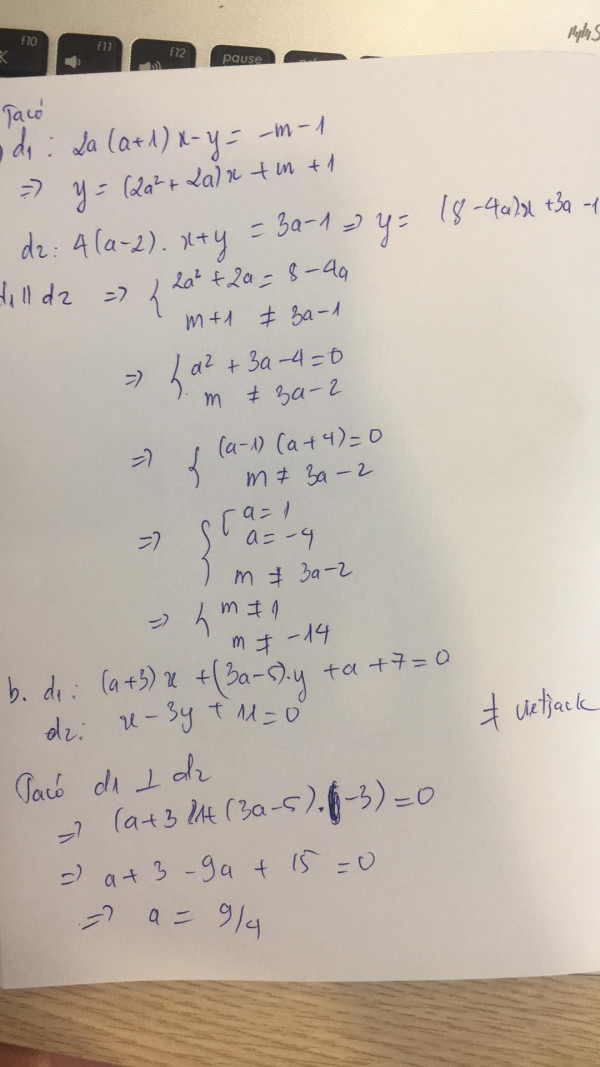 f10
f11
f12
pause
Ta có
d₁ : 2a(a+1)x-y = -m-1
=> y = (2a²+2a)x + m + 1
d₂: 4(a-2).x+y = 3a-1 => y = (8-4a)x+3a-1
d₁ || d₂ => { 2a²+2a = 8-4a
m+1 ≠ 3a-1
=> { a² + 3a-4=0
m ≠ 3a-2
=> { (a-1)(a+4)=0
m ≠ 3a-2
=> { [ a = 1
a = -4
m ≠ 3a-2
=> { m ≠ 1
m ≠ -14
b. d₁: (a+3)x +(3a-5).y +a+7=0
d₂: x-3y + 11=0
≠ vietjack
Ta có d₁ ⊥ d₂
=> (a+3).1+(3a-5).(-3)=0
=> a+3-9a + 15 =0
=> a = 9/4